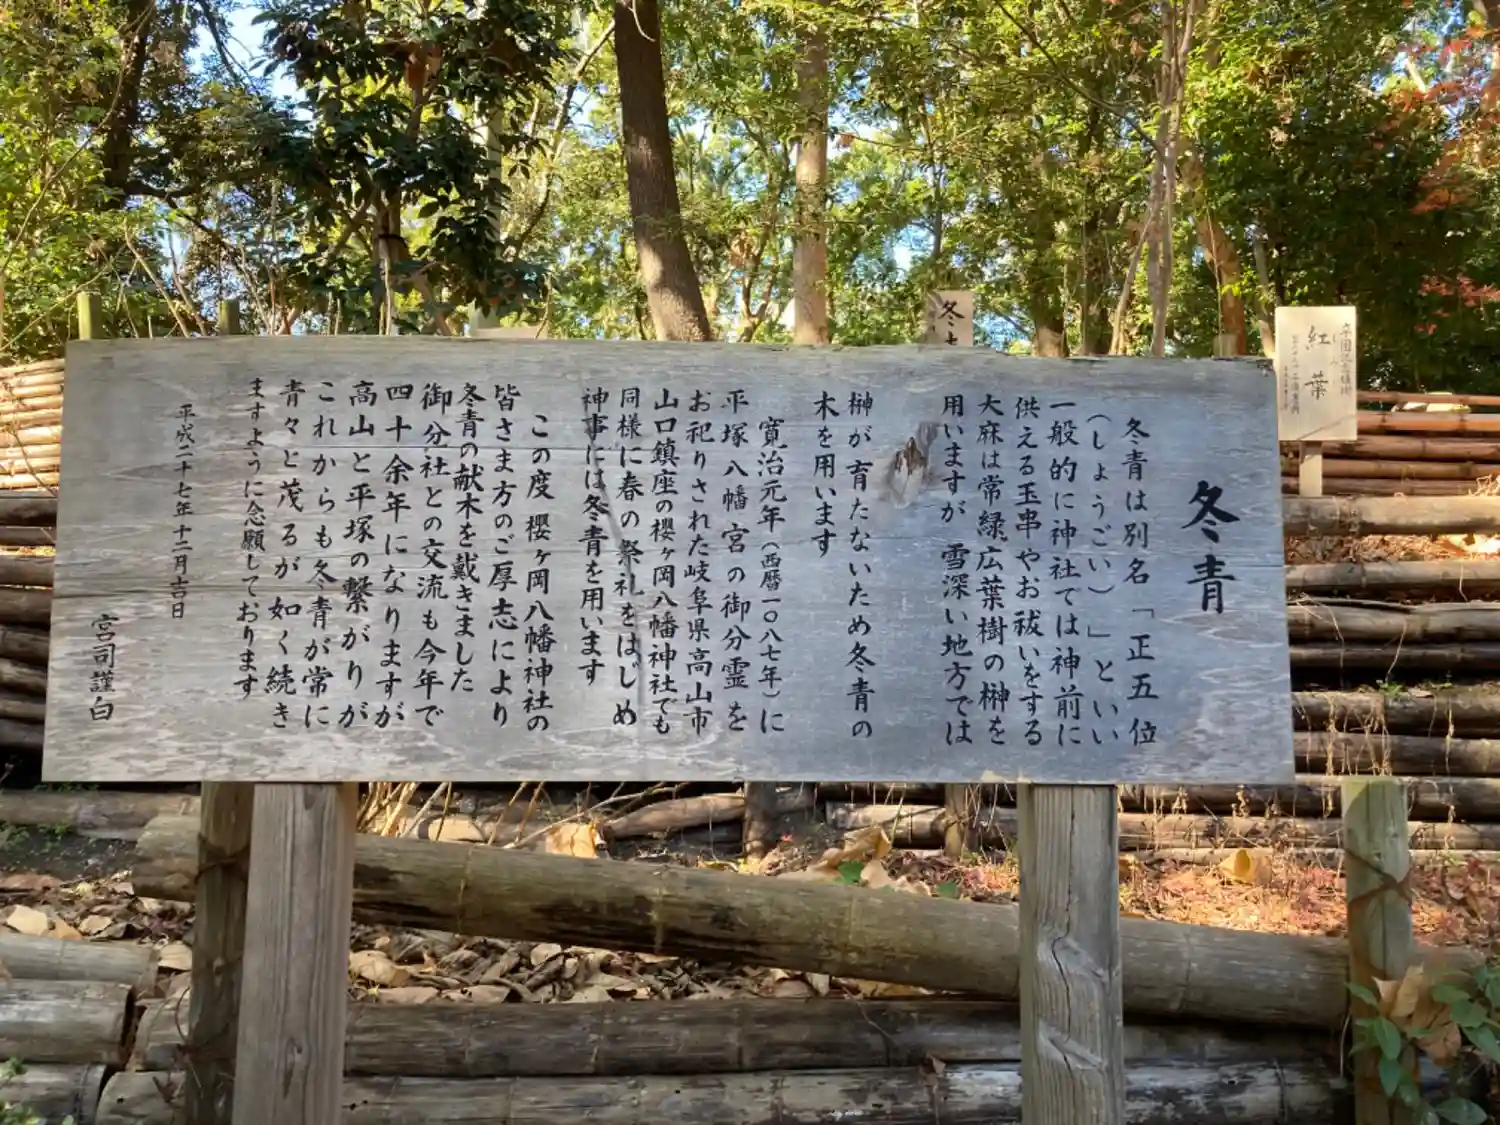 冬青
冬青は別名「正五位
（しょうごい）」といい
一般的に神社ては神前に
供える玉串やお祓いをする
大麻は常緑広葉樹の榊を
用いますが 雪深い地方では
榊が育たないため冬青の
木を用います
寛治元年（西暦一〇八七年）に
平塚八幡宮の御分霊を
お祀りされた岐阜県高山市
山口鎮座の櫻ヶ岡八幡神社でも
同様に春の祭礼をはじめ
神事には冬青を用います
この度 櫻ヶ岡八幡神社の
皆さま方のご厚志により
冬青の献木を戴きました
御分社との交流も今年で
四十余年になりますが
高山と平塚の繋がりが
これからも冬青が常に
青々と茂るが如く続き
ますように念願しております
平成二十七年十二月吉日
宮司謹白
冬
紅葉